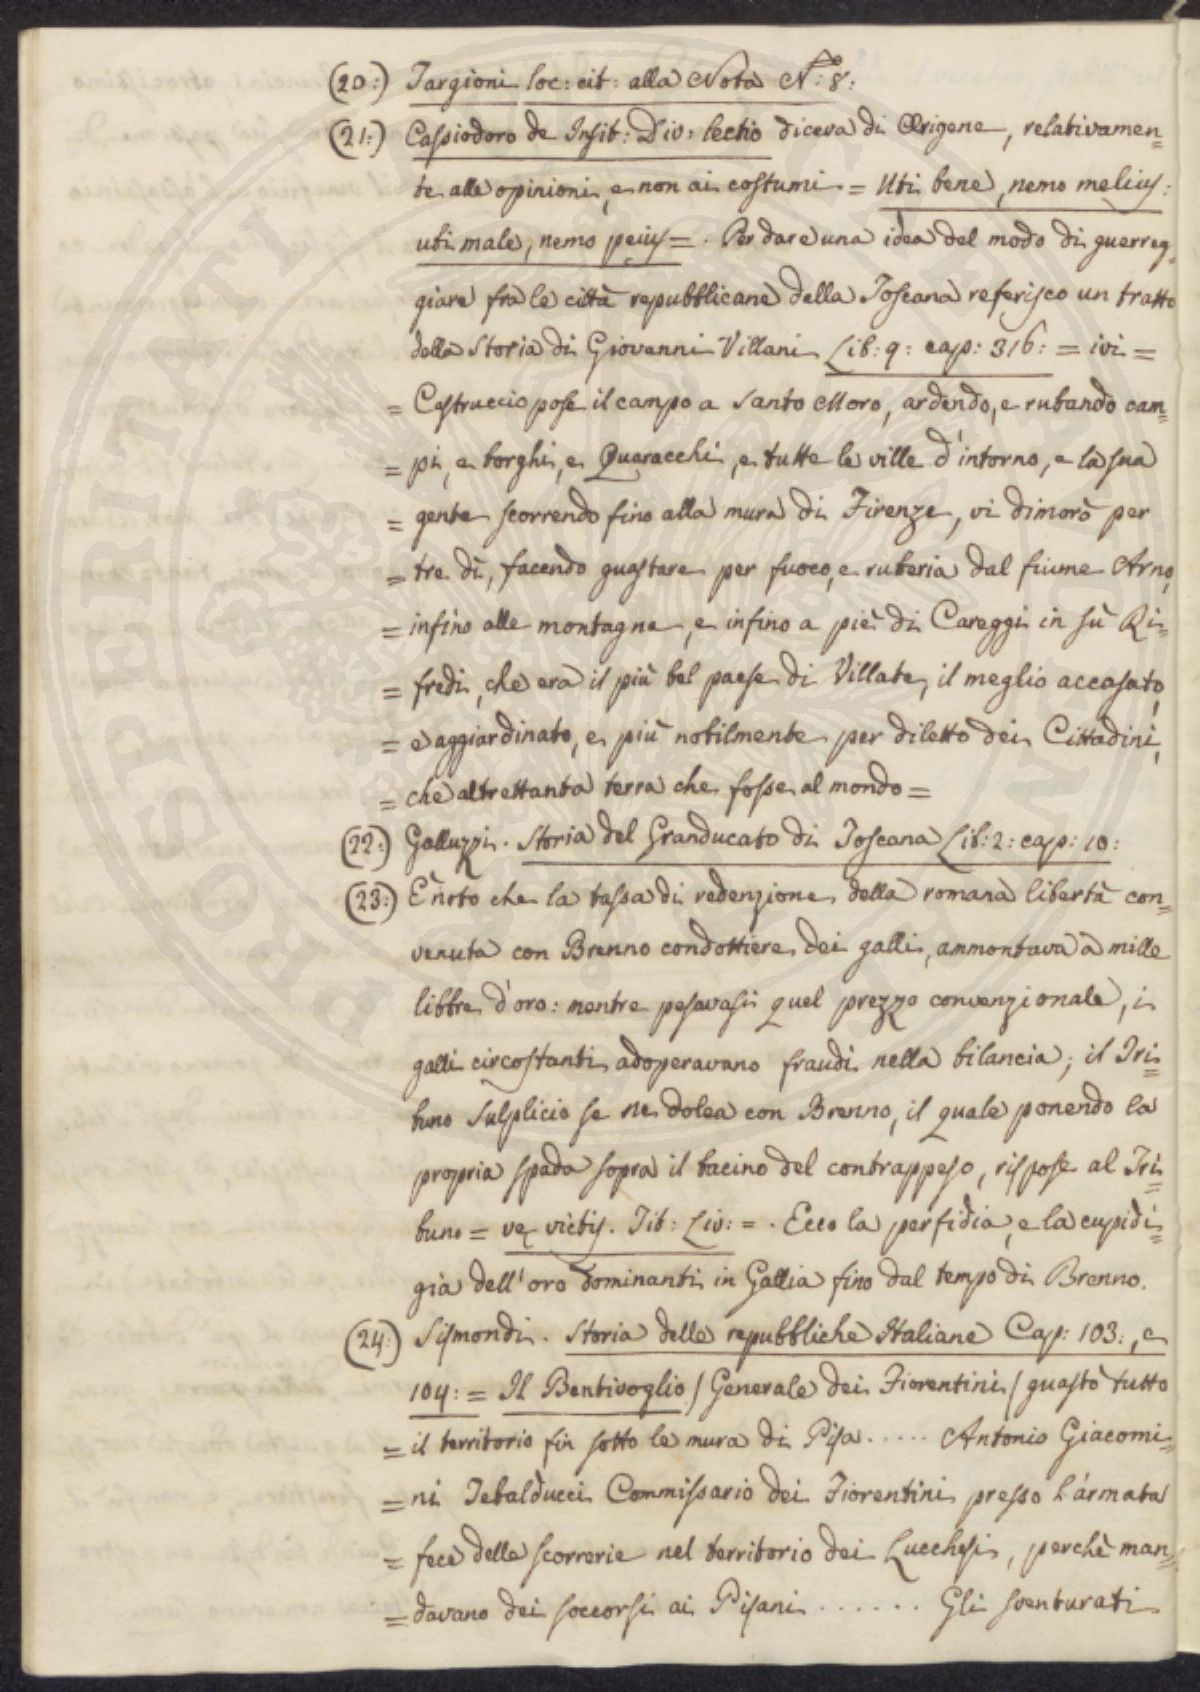 (20:) Targioni loc: cit: alla Nota N.º 8:
(21:) Cassiodoro de Instit: Div: lectio diceva di Origene, relativamen=
te alle opinioni, e non ai costumi = Ubi bene, nemo melius:
ubi male, nemo peius = . Per dare una idea del modo di guerreg=
giare fra le città repubblicane della Toscana referisco un tratto
della Storia di Giovanni Villani Lib: 9: cap: 316: = ivi =
= Castruccio pose il campo a Santo Moro, ardendo, e rubando cam=
= pi, e borghi, e Quaracchi, e tutte le ville d'intorno, e la sua
= gente scorrendo fino alla mura di Firenze, vi dimorò per
= tre dì, facendo guastare per fuoco, e ruberia dal fiume Arno,
= infino alle montagne, e infino a piè di Careggi in sù Ri=
= fredi, che era il più bel paese di Villate, il meglio accasato,
= e aggiardinato, e più nobilmente per diletto dei Cittadini,
= che altrettanta terra che fosse al mondo =
(22:) Galluzzi. Storia del Granducato di Toscana Lib: 2: cap: 10:
(23:) È noto che la tassa di redenzione della romana libertà con=
venuta con Brenno condottiere dei galli, ammontava a mille
libbre d'oro: mentre pesavasi quel prezzo convenzionale, i
galli circostanti adoperavano fraudi nella bilancia; il Tri=
buno Sulplicio se ne dolea con Brenno, il quale ponendo la
propria spada sopra il bacino del contrappeso, rispose al Tri=
buno = ve victis. Tit: Liv: = . Ecco la perfidia, e la cupidi=
gia dell'oro dominanti in Gallia fino dal tempo di Brenno.
(24:) Sismondi. Storia delle repubbliche Italiane Cap: 103:, e
104: = Il Bentivoglio / Generale dei Fiorentini / guastò tutto
= il territorio fin sotto le mura di Pisa ..... Antonio Giacomi=
= ni Tebalducci Commissario dei Fiorentini presso l'armata
= fece delle scorrerie nel territorio dei Lucchesi, perchè man=
= davano dei soccorsi ai Pisani ...... Gli sventurati
PROSPERITATI